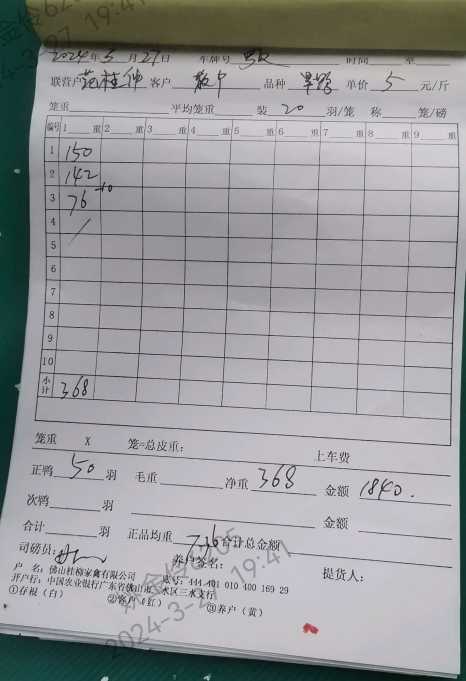 2024年3月27日 车牌号 时间 至
联营户 范桂仲 客户 散户 品种 单价 5 元/斤
笼重 平均笼重 装 20 羽/笼 称 笼/磅
编号 1 重 2 重 3 重 4 重 5 重 6 重 7 重 8 重 9 重
1 150
2 142
3 76 10
4
5
6
7
8
9
10
小计 368
笼重 X 笼=总皮重: 上车费
正鸭 50 羽 毛重 净重 368 金额 1840.
次鸭 羽 金额
合计 羽 正品均重 7.36 合计总金额
司磅员: 养户签名: 提货人:
户 名: 佛山桂柳家禽有限公司 账号: 444 401 010 400 169 29
开户行: 中国农业银行广东省佛山市三水区三水支行
①存根(白) ②客户(红) ③养户(黄)
2024-3-27 19:41